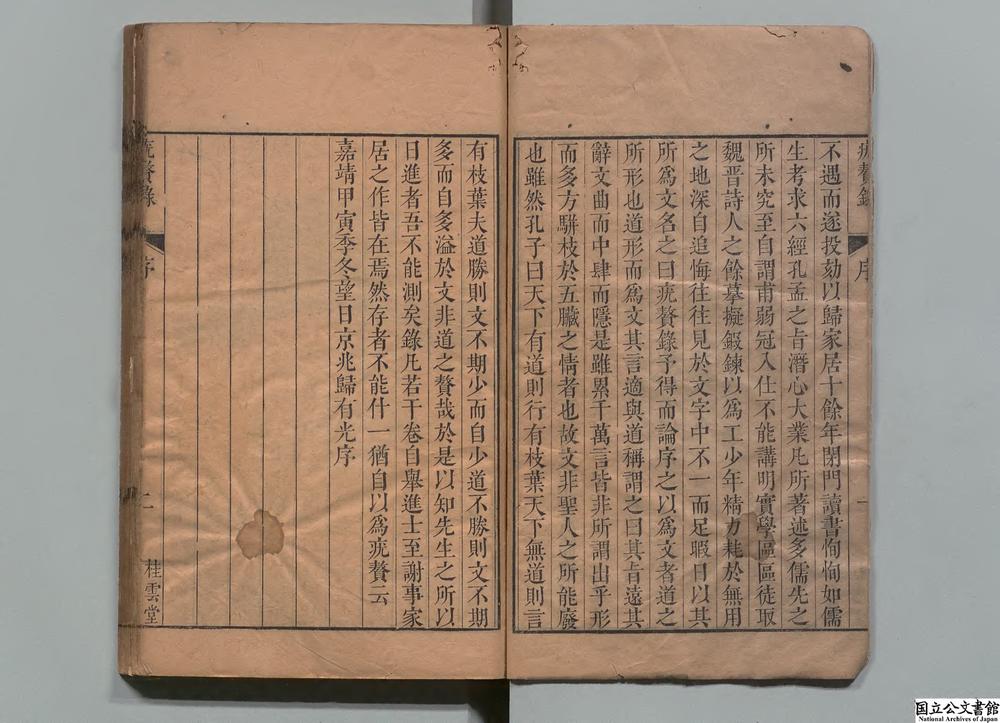 疣贅錄 序 一
不遇而遂投劾以歸家居十餘年閉門讀書恂恂如儒
生考求六經孔孟之旨潛心大業凡所著述多儒先之
所未究至自謂甫弱冠入仕不能講明實學區區徒取
魏晉詩人之餘摹擬鍛鍊以爲工少年精力耗於無用
之地深自追悔往往見於文字中不一而足暇日以其
所爲文名之曰疣贅錄予得而論序之以爲文者道之
所形也道形而爲文其言適與道稱謂之曰其旨遠其
辭文曲而中肆而隱是雖累千萬言皆非所謂出乎形
而多方駢枝於五臟之情者也故文非聖人之所能廢
也雖然孔子曰天下有道則行有枝葉天下無道則言
有枝葉夫道勝則文不期少而自少道不勝則文不期
多而自多溢於文非道之贅哉於是以知先生之所以
日進者吾不能測矣錄凡若干卷自舉進士至謝事家
居之作皆在焉然存者不能什一猶自以爲疣贅云
嘉靖甲寅季冬望日京兆歸有光序
疣贅錄 序 二 桂雲堂
国立公文書館
National Archives of Japan